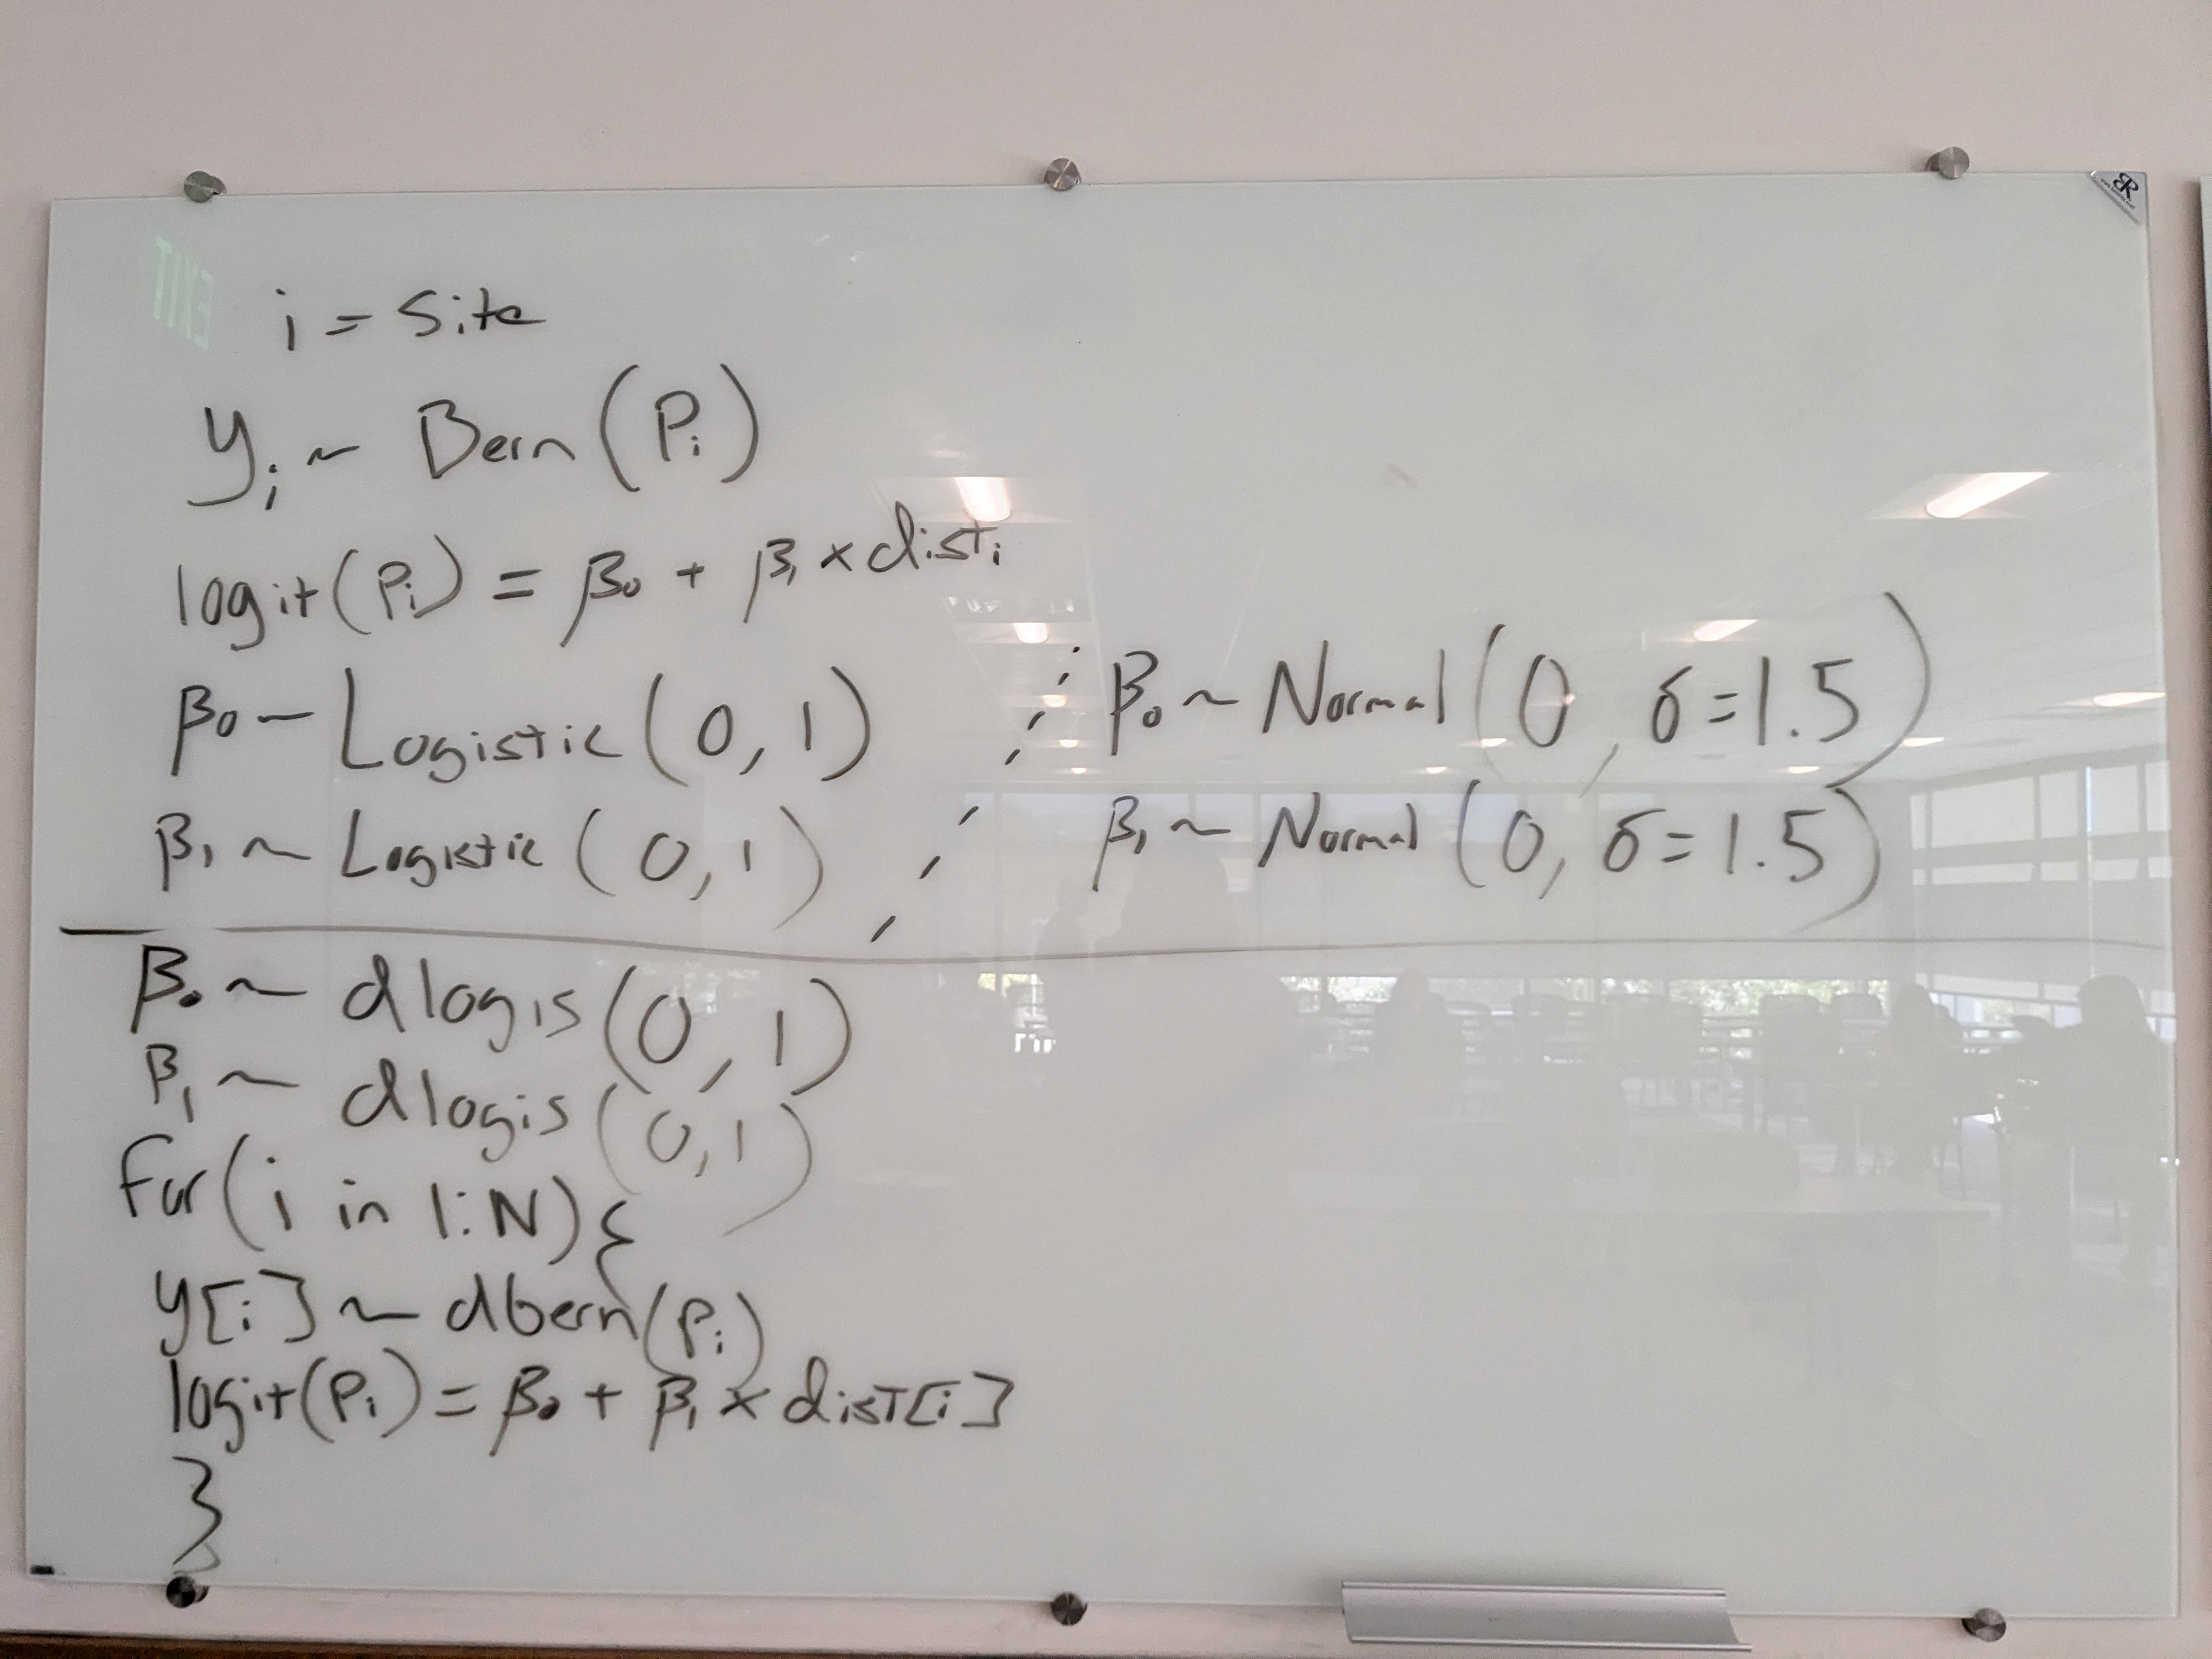 i = Site
y_i ~ Bern(P_i)
logit(P_i) = β_0 + β_1 × dist_i
β_0 ~ Logistic(0, 1) ; β_0 ~ Normal(0, σ=1.5)
β_1 ~ Logistic(0, 1) β_1 ~ Normal(0, σ=1.5)
β_0 ~ dlogis(0, 1)
β_1 ~ dlogis(0, 1)
for(i in 1:N){
y[i] ~ dbern(P_i)
logit(P_i) = β_0 + β_1 × dist[i]
}
EXIT